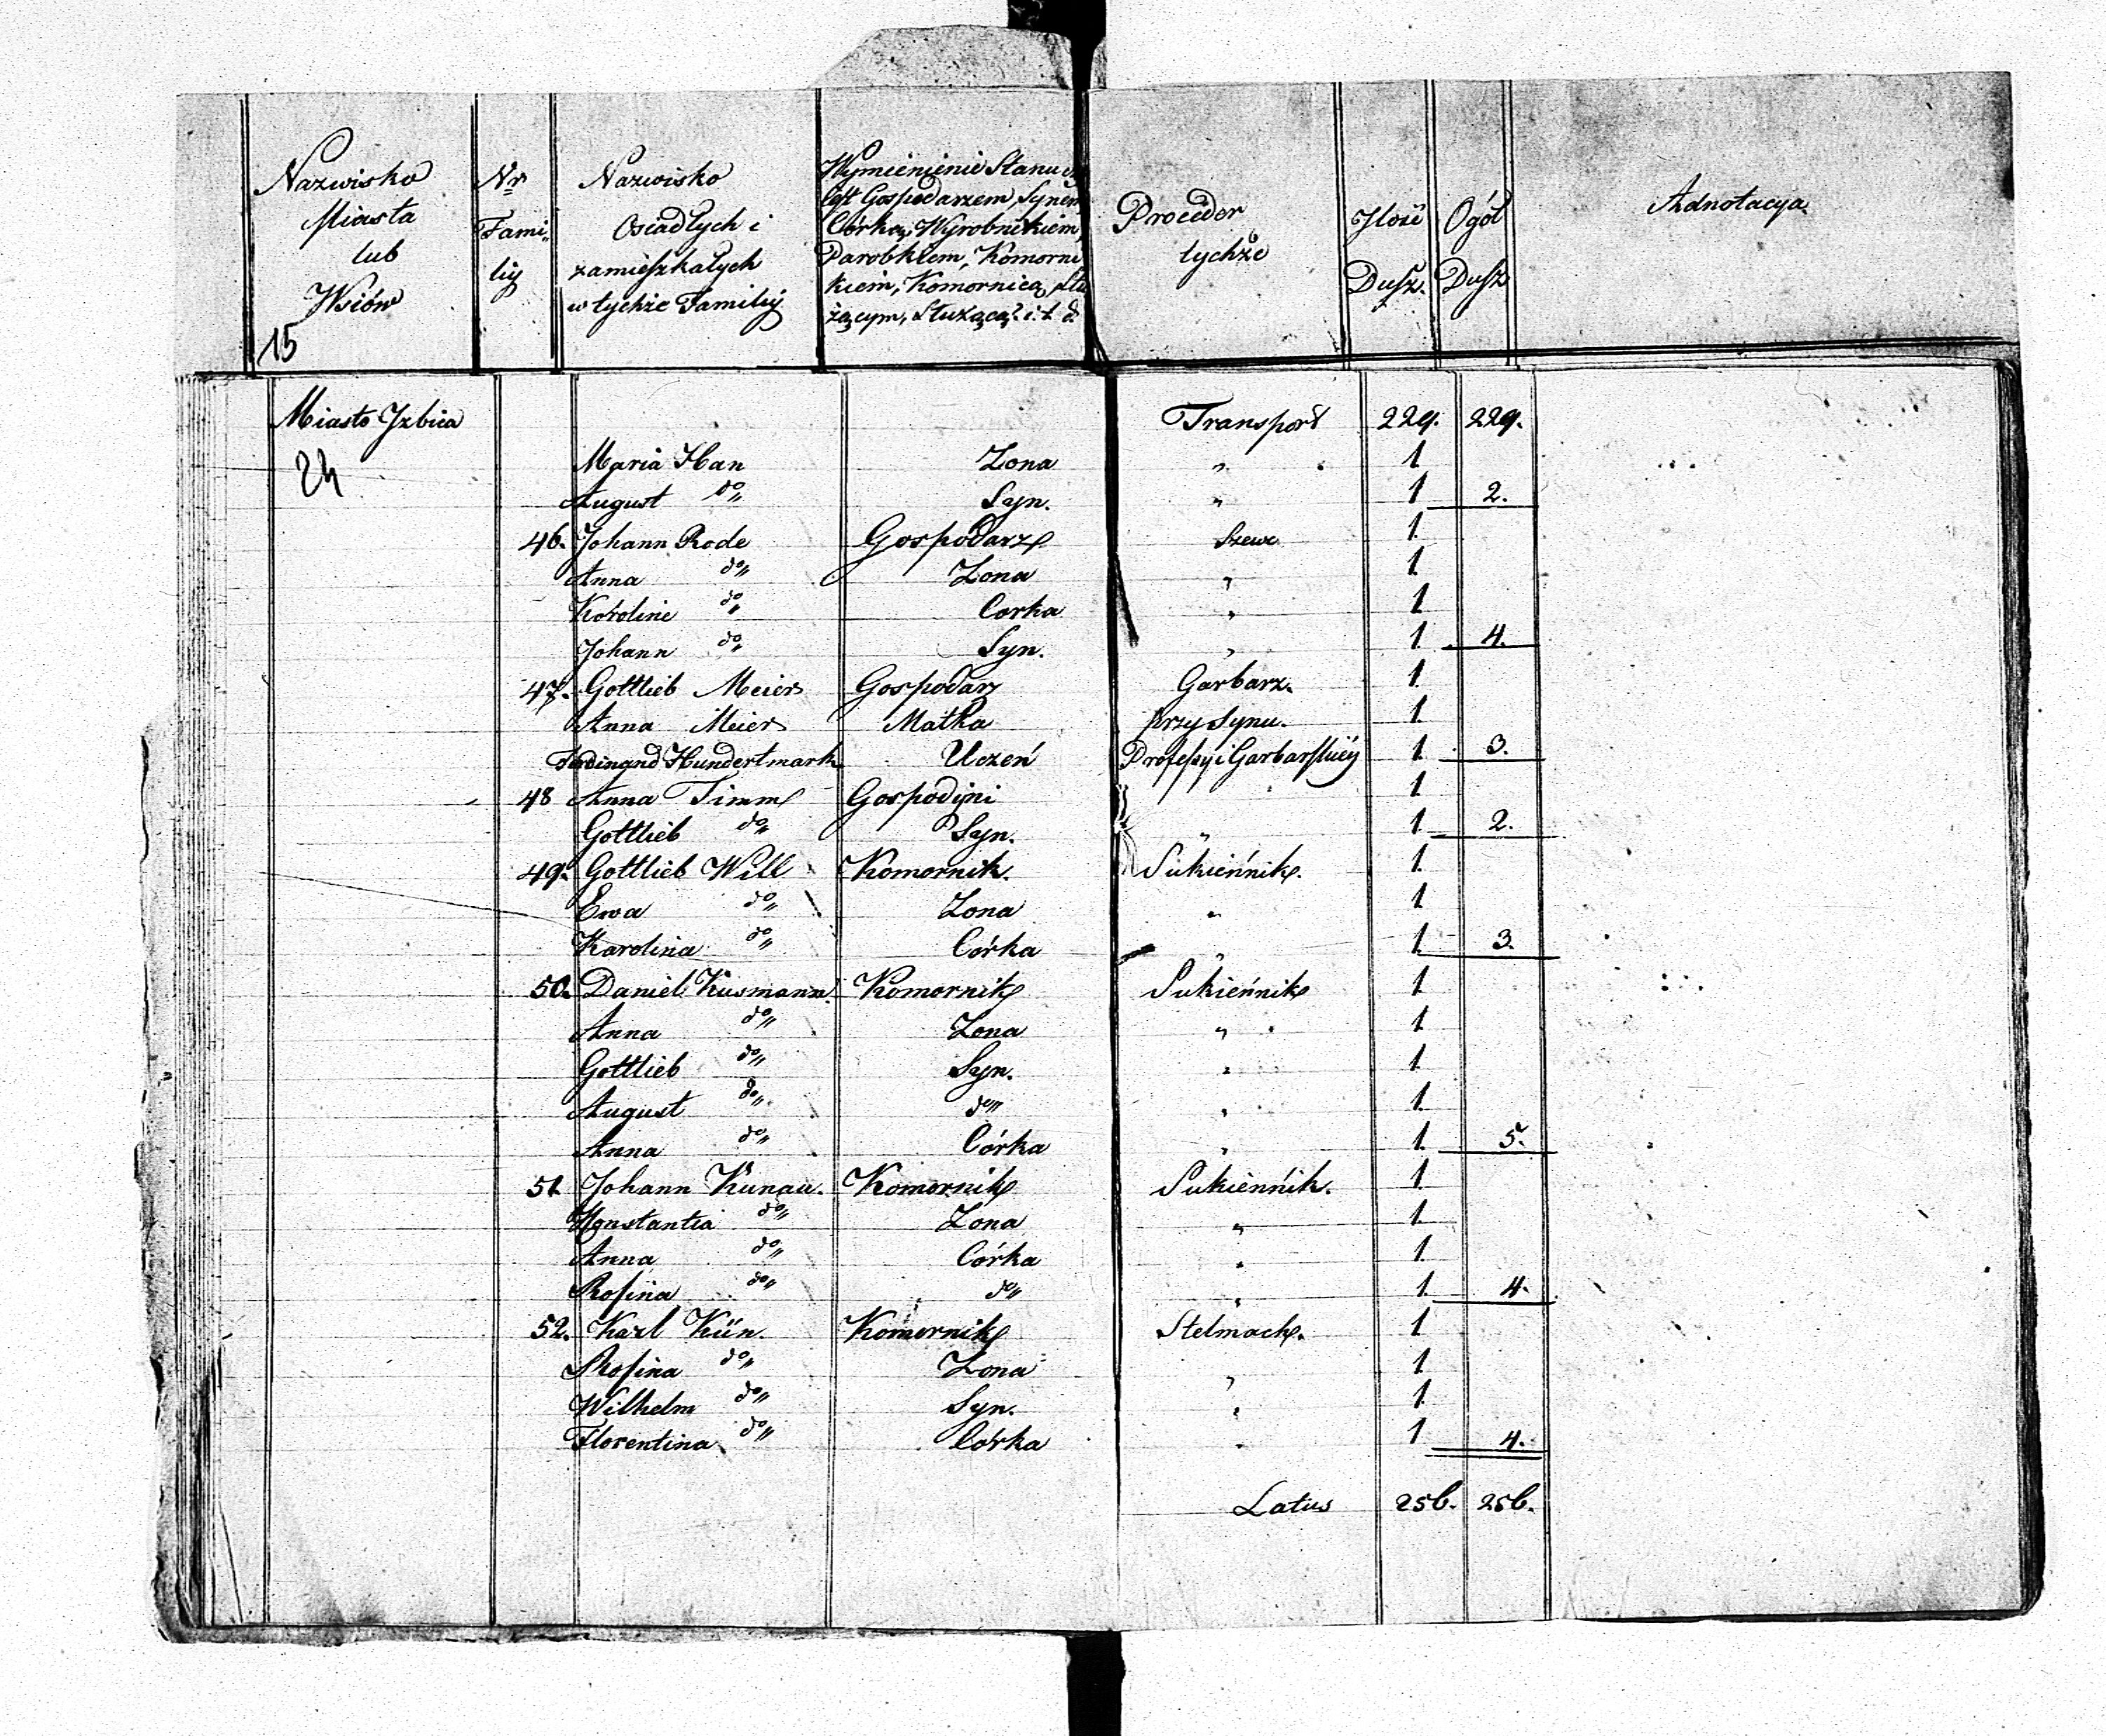 Nazwisko Miasta lub Wsiów
Nr Familiy
Nazwisko Osiadłych i zamieszkałych w tychże Familiy
Wymienienie Stanu
iest Gospodarzem, Synem,
Córką, Wyrobnikiem,
Parobkiem, Komorni
kiem, Komornicą, Słu
żącym, Służącą? i. t. d.
Proceder tychże
Ilość Dusz.
Ogół Dusz
Adnotacya.
15
Miasto Izbica Transport 229. 229.
24
Maria Han Zona " 1
August do" Syn. " 1 2.
46. Johann Rode Gospodarz Szewc 1
Anna do" Zona " 1
Karoline do" Corka " 1
Johann do" Syn. " 1 4.
47. Gottlieb Meier Gospodarz Garbarz. 1
Anna Meier Matka przy Synu. 1
Ferdinand Hundertmark Uczeń Professyi Garbarskiey 1 3.
48 Anna Timm Gospodyni 1
Gottlieb do" Syn. " 1 2.
49. Gottlieb Will Komornik. Sukiennik. 1
Ewa do" Zona " 1
Karolina do" Córka " 1 3.
50. Daniel Kusmann. Komornik Sukiennik 1
Anna do" Zona " 1
Gottlieb do" Syn. " 1
August do" do" " 1
Anna do" Córka " 1 5.
51 Johann Kunau. Komornik Sukiennik. 1
Konstantia do" Zona " 1
Anna do" Córka " 1
Rosina do" do" " 1 4.
52. Karl Kün. Komornik Stelmach. 1
Rosina do" Zona " 1
Wilhelm do" Syn. " 1
Florentina do" Córka " 1 4.
Latus 256. 256.